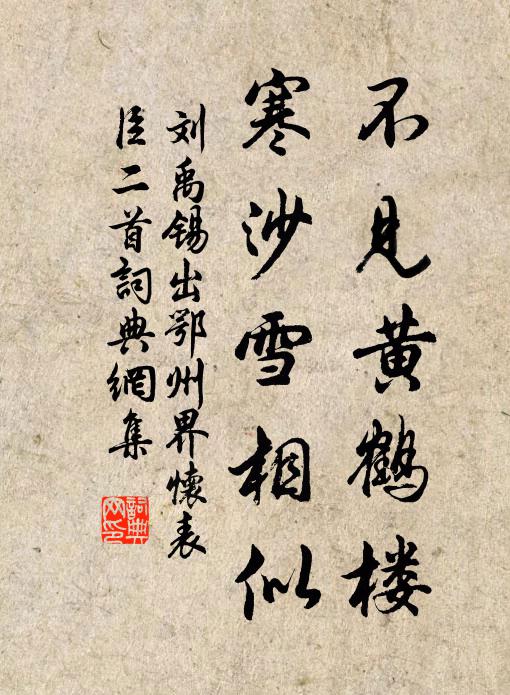 不见黄鹤楼
寒沙雪相似
刘禹锡出鄂州界懷表
臣二首詞典網集
詞典网印